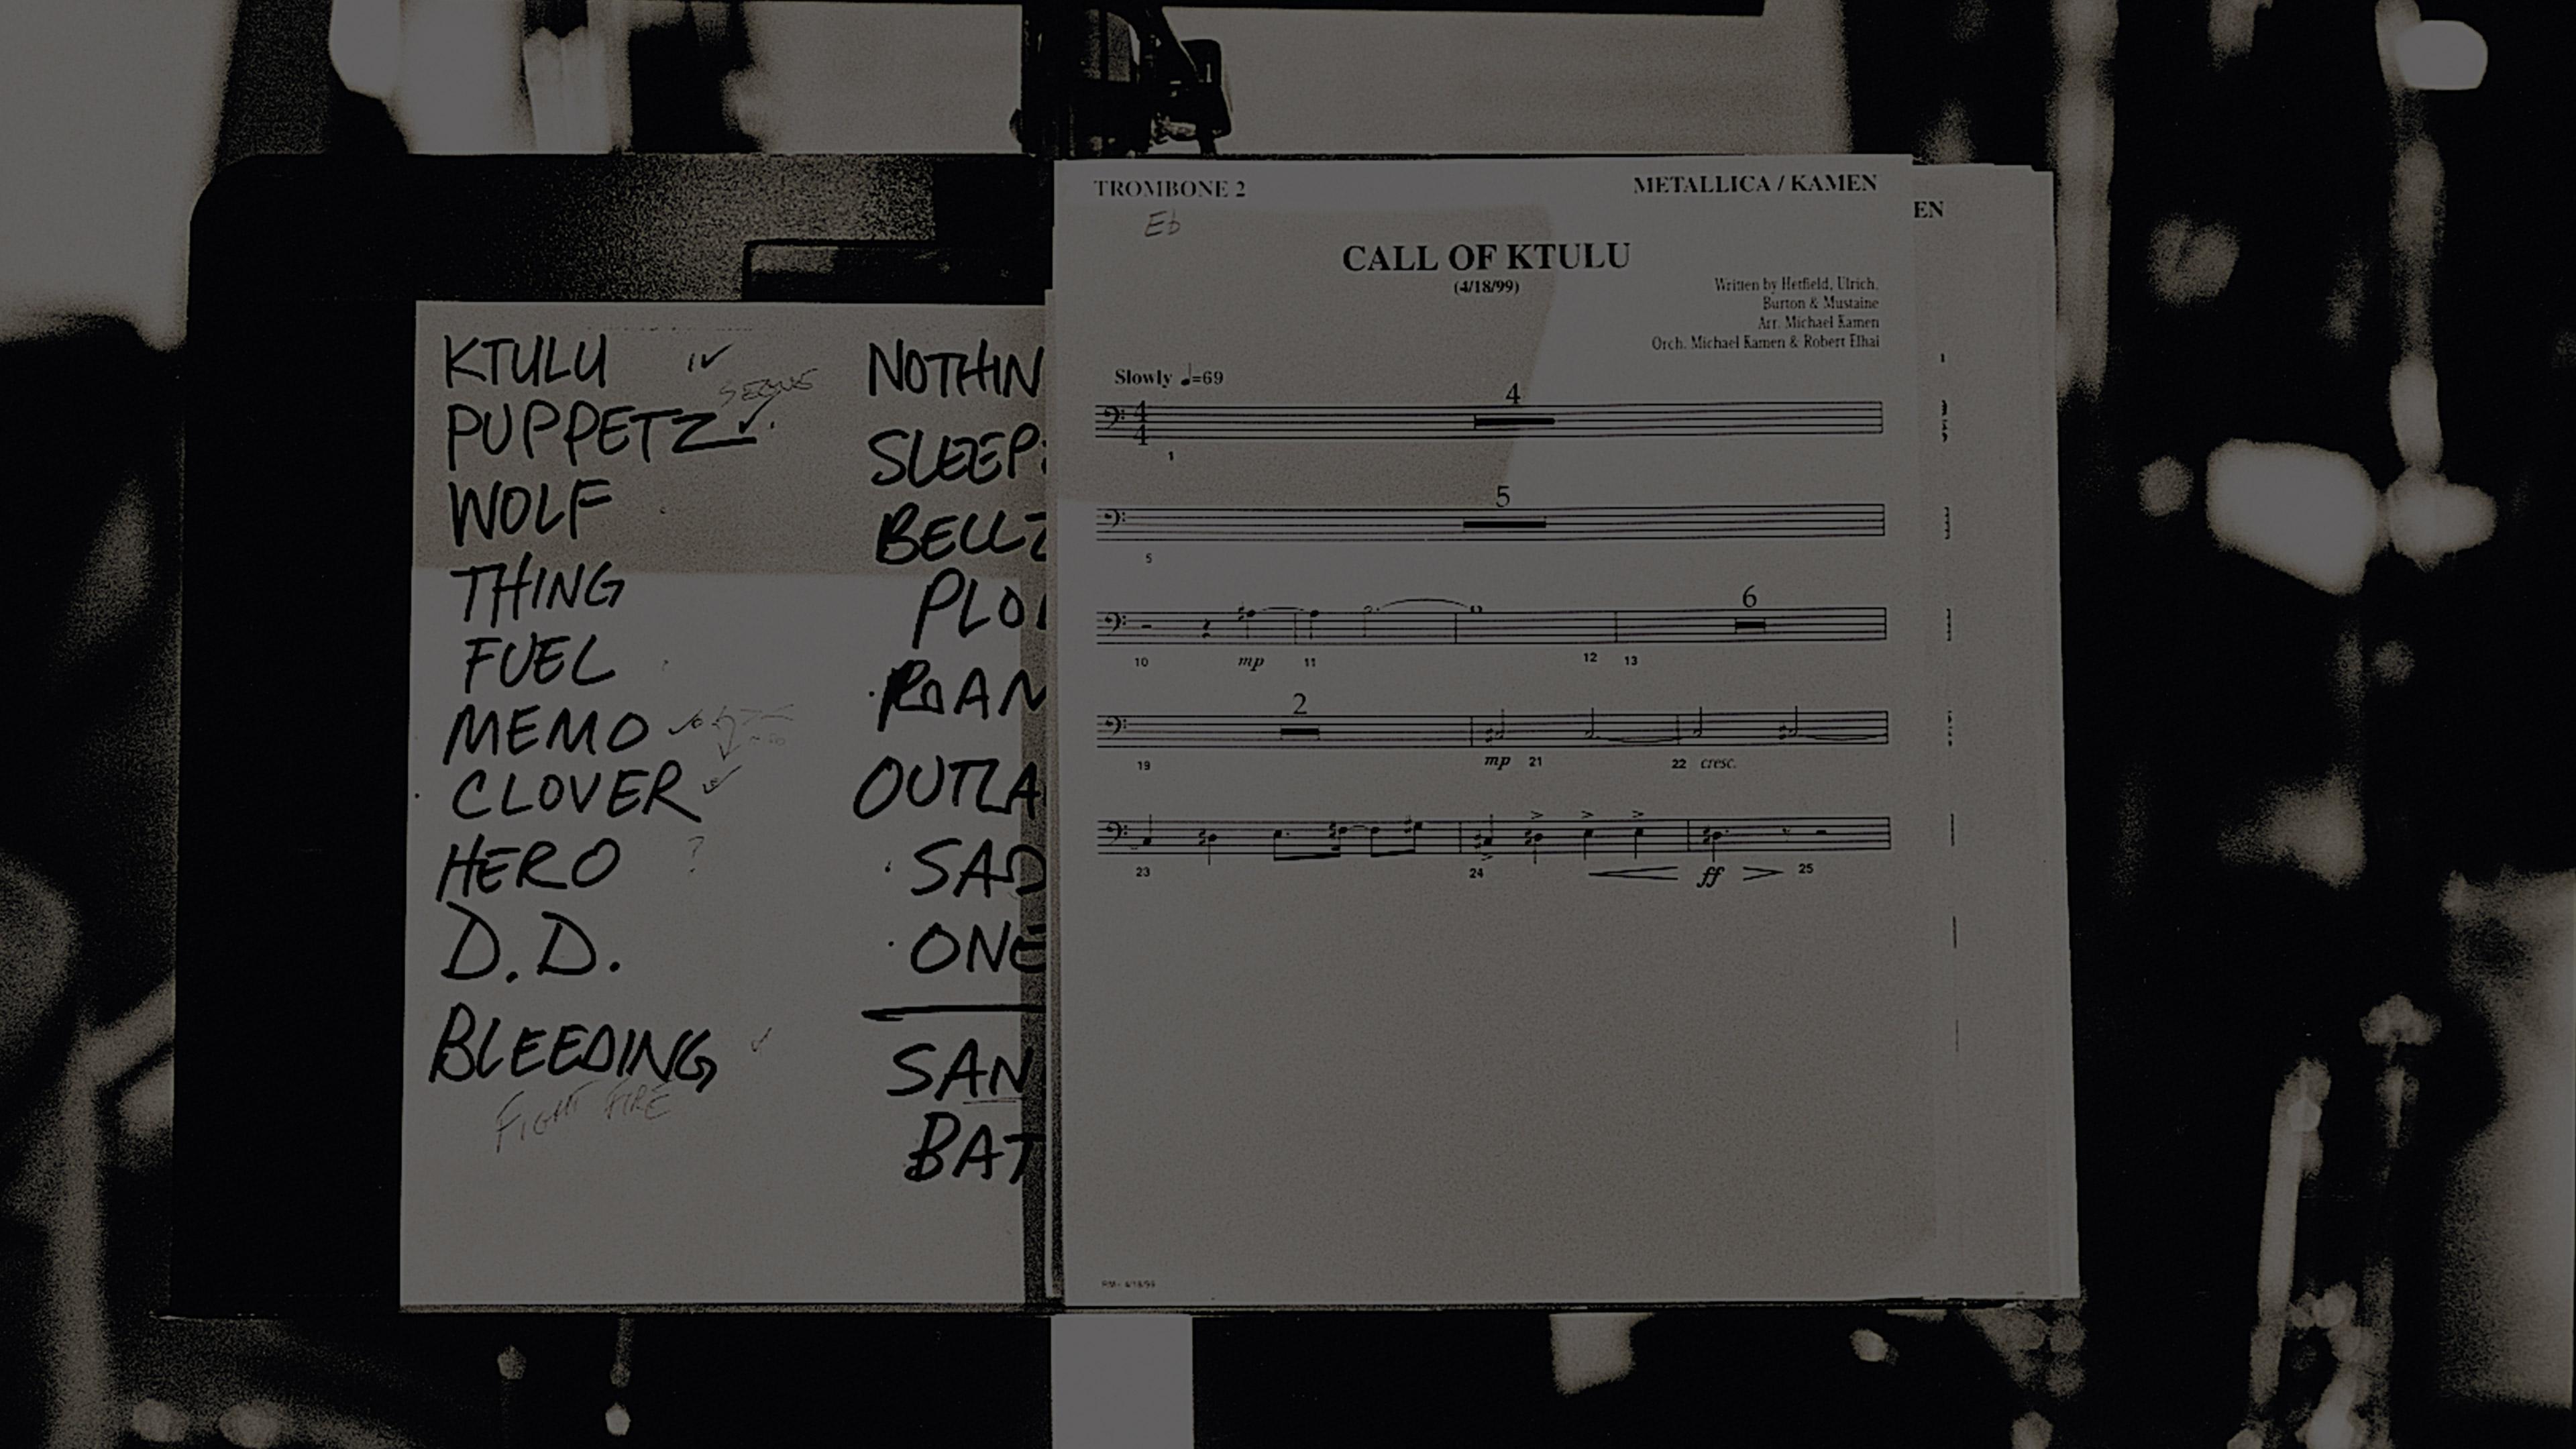 KTULU
SEGUE
PUPPETZ
WOLF
THING
FUEL
MEMO
CLOVER
HERO ?
D.D.
BLEEDING
FIGHT FIRE
NOTHIN
SLEEP
BELLZ
PLO
ROAM
OUTLA
SAD
ONE
SAN
BAT
TROMBONE 2
METALLICA / KAMEN
EN
Eb
CALL OF KTULU
(4/18/99)
Written by Hetfield, Ulrich,
Burton & Mustaine
Arr. Michael Kamen
Orch. Michael Kamen & Robert Elhai
Slowly ♩=69
4
1
5
5
6
10 mp 11 12 13
2
19 mp 21 22 cresc.
23 24 ff 25
RM - 4/18/99